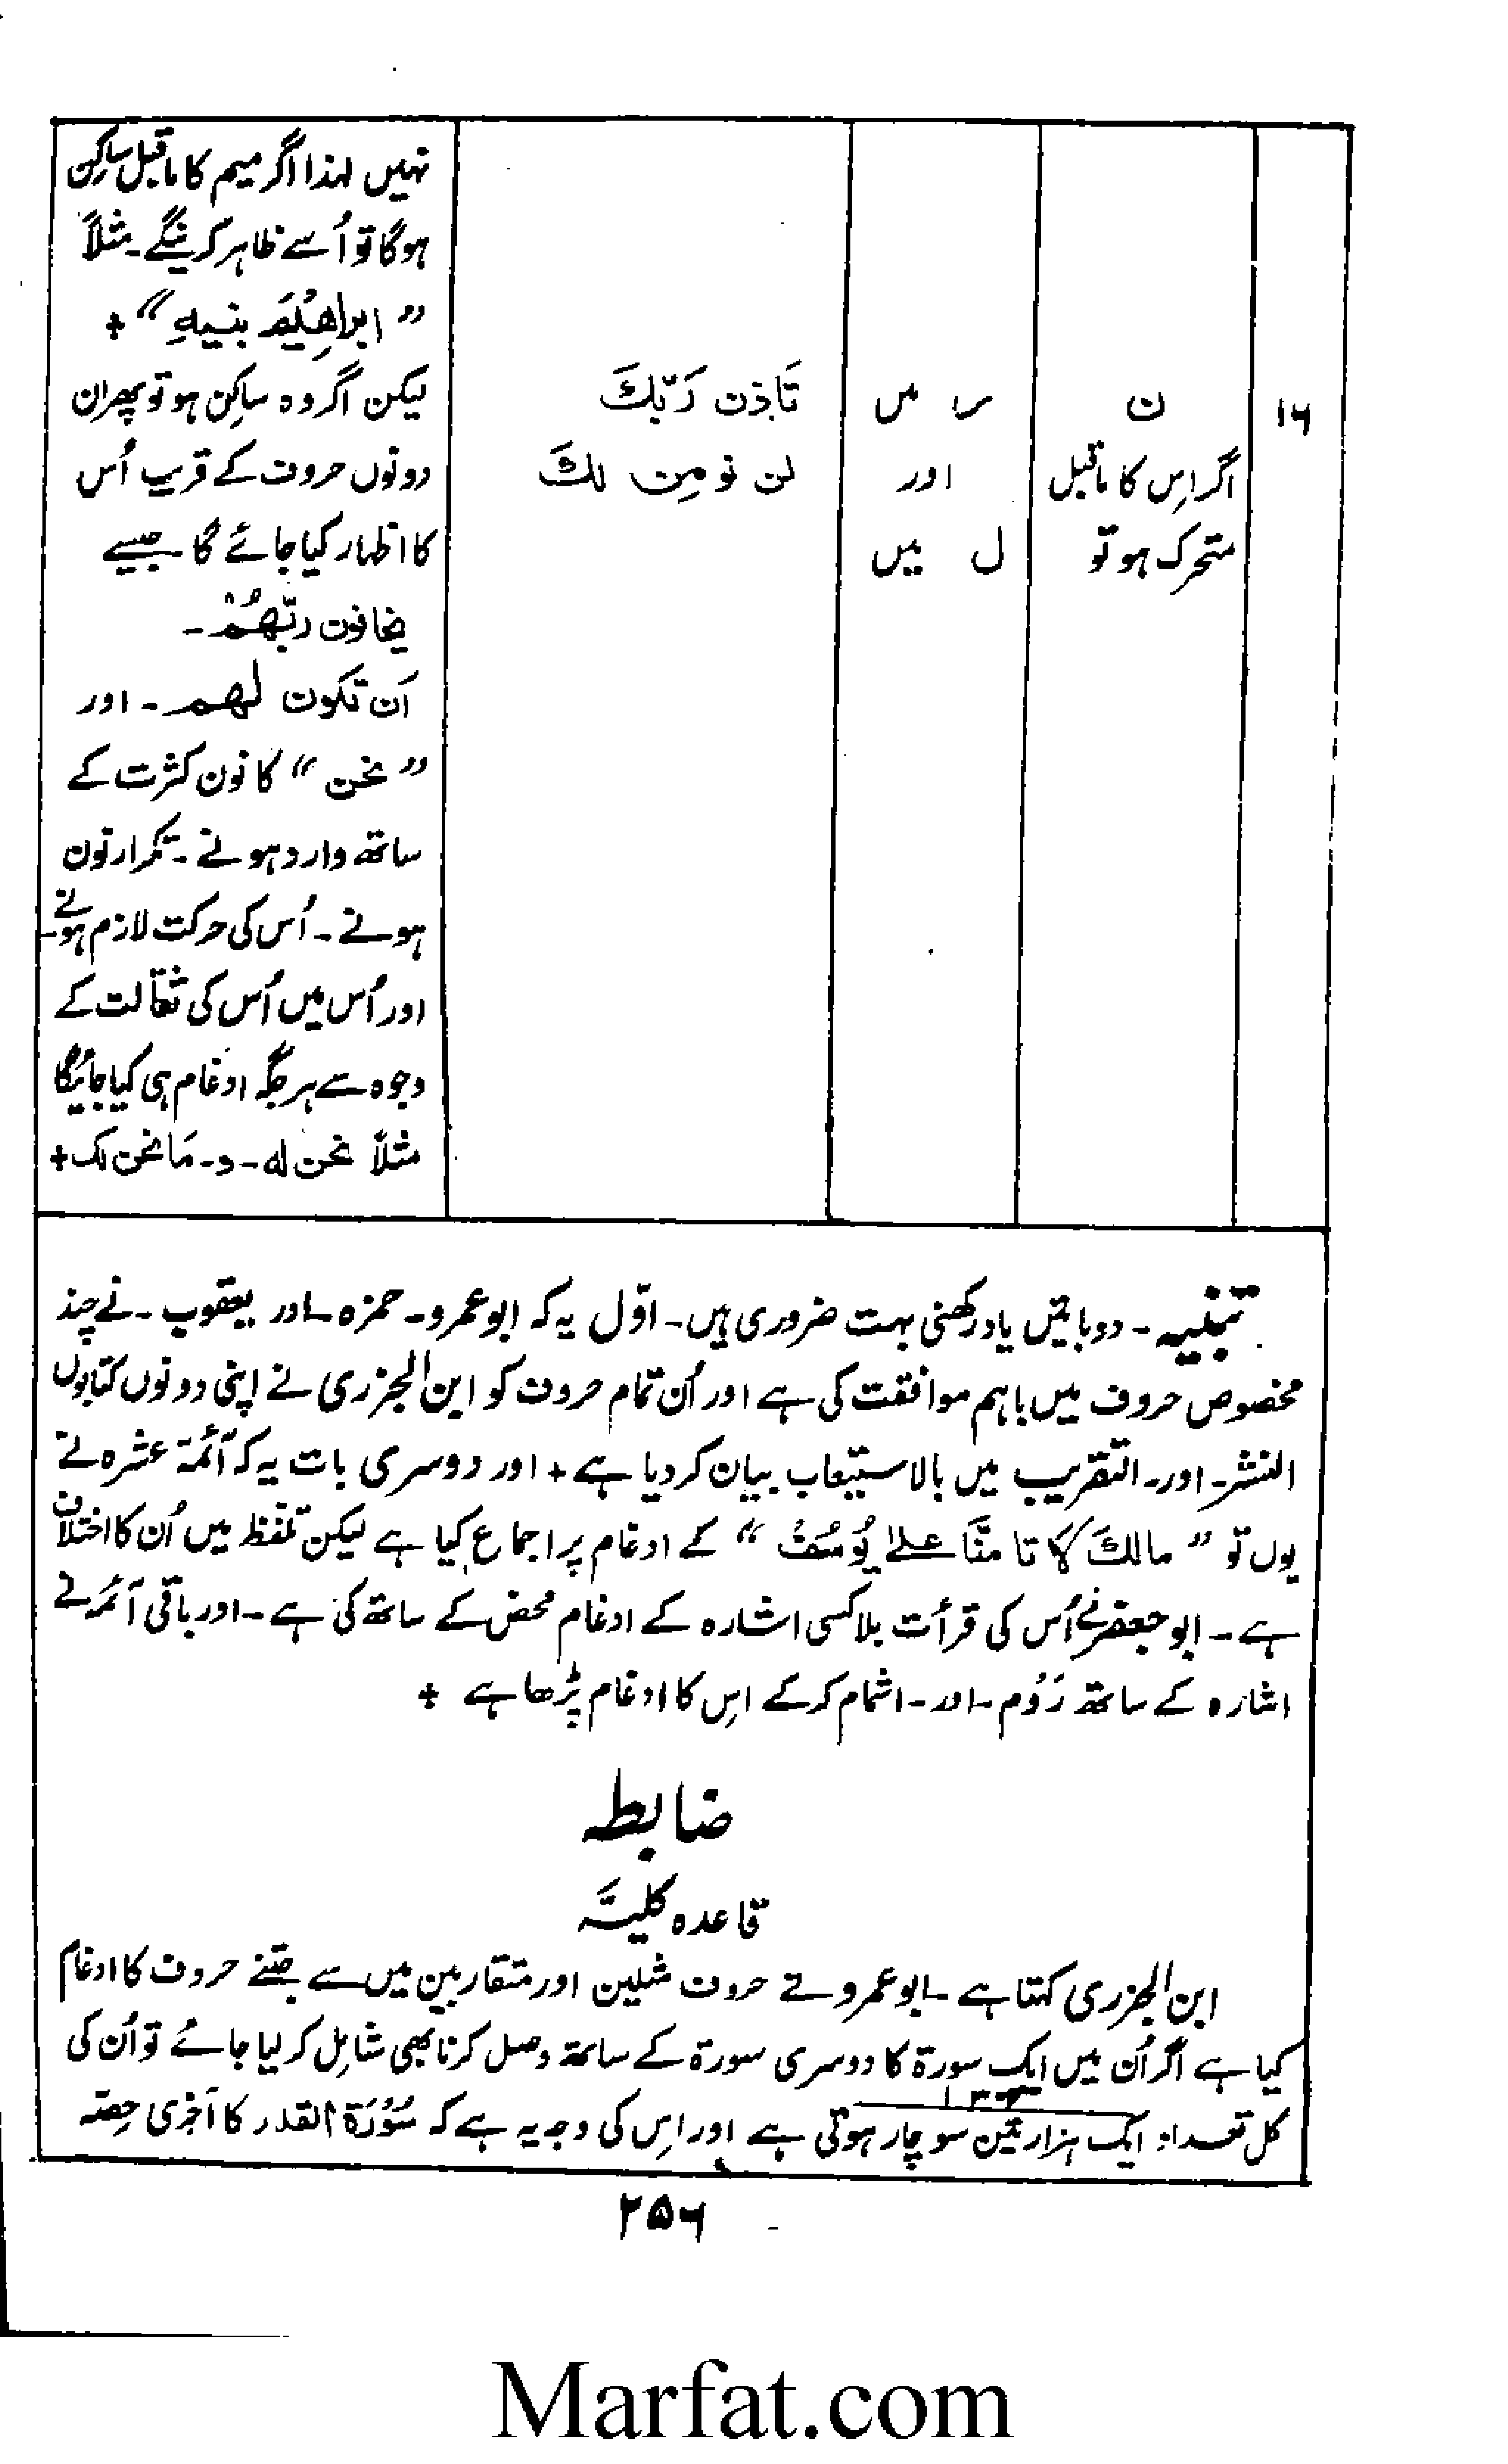 نہیں لہذا اگر میم کا ماقبل ساکن
ہوگا تو اُسے ظاہر کرینگے۔ مثلاً
”ابراهِیْمَ بنیهِ“ +
۱۶
ن
اگر اِس کا ماقبل
متحرک ہو تو
ر میں
اور
ل میں
تَاَذن رَبّكَ
لن نومِن لكَ
لیکن اگر وہ ساکن ہو تو پھر ان
دونوں حروف کے قریب اُس
کا اظہار کیا جائے گا۔ جیسے
یخافون ربّهُمْ۔
اَن تكون لهم۔ اور
”نحن“ کا نون کثرت کے
ساتھ وارد ہونے۔ تکرار نون
ہونے۔ اُس کی حرکت لازم ہونے۔
اور اُس میں اُس کی ثقالت کے
وجوہ سے ہر جگہ ادغام ہی کیا جائیگا
مثلاً نحن له۔ و۔ مَا نحن لک +
تنبیہ۔ دو باتیں یاد رکھنی بہت ضروری ہیں۔ اوّل یہ کہ ابوعمرو۔ حمزہ۔ اور یعقوب۔ نے چند
مخصوص حروف میں باہم موافقت کی ہے اور اُن تمام حروف کو ابن الجزری نے اپنی دونوں کتابوں
النشر۔ اور۔ التقریب میں بالاستیعاب بیان کر دیا ہے + اور دوسری بات یہ کہ آئمۃ عشرہ نے
یوں تو ”مالكَ لا تا منَّا علےٰ یُوسُفُ“ کے ادغام پر اجماع کیا ہے لیکن تلفظ میں اُن کا اختلاف
ہے۔ ابو جعفر نے اُس کی قرأت بلا کسی اشارہ کے ادغام محض کے ساتھ کی ہے۔ اور باقی آئمہ نے
اشارہ کے ساتھ رَوْم۔ اور۔ اشمام کر کے اِس کا ادغام پڑھا ہے +
ضابطہ
قاعدہ کلیّہ
ابن الجزری کہتا ہے۔ ابوعمرو نے حروف مثلین اور متقاربین میں سے جتنے حروف کا ادغام
کیا ہے اگر اُن میں ایک سورۃ کا دوسری سورۃ کے ساتھ وصل کرنا بھی شامل کر لیا جائے تو اُن کی
کل تعداد ایک ہزار تین سو چار ہوتی ہے اور اِس کی وجہ یہ ہے کہ سُوْرَة القدر کا آخری حِصّہ
۲۵۶
Marfat.com